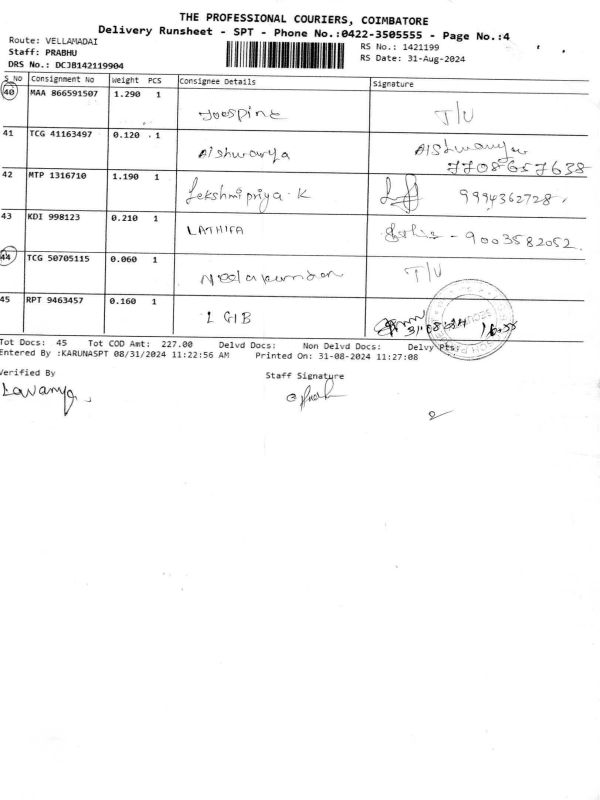 THE PROFESSIONAL COURIERS, COIMBATORE
Delivery Runsheet - SPT - Phone No.:0422-3505555 - Page No.:4
Route: VELLAMADAI
Staff: PRABHU
DRS No.: DCJB142119904
RS No.: 1421199
RS Date: 31-Aug-2024
S_NO Consignment No Weight PCS Consignee Details Signature
40 MAA 866591507 1.290 1 Joespine T/U
41 TCG 41163497 0.120 1 Aishwarya Aishwarya
7708657638
42 MTP 1316710 1.190 1 Lekshmipriya.K 9994362728
43 KDI 998123 0.210 1 LATHIFA - 9003582052
44 TCG 50705115 0.060 1 T/U
45 RPT 9463457 0.160 1 31/08/24
Tot Docs: 45 Tot COD Amt: 227.00 Delvd Docs: Non Delvd Docs: Delvy Pts:
Entered By :KARUNASPT 08/31/2024 11:22:56 AM Printed On: 31-08-2024 11:27:08
Verified By Staff Signature
Lavanya